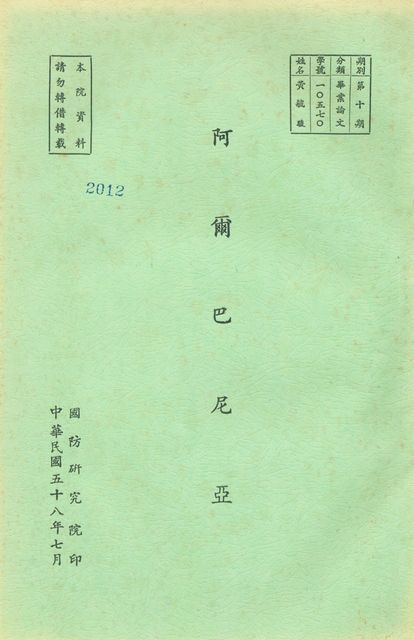 期別 第十期
分類 畢業論文
學號 一〇五七〇
姓名 黃毓峻
阿爾巴尼亞
本院資料
請勿轉借轉載
2012
國防研究院印
中華民國五十八年七月